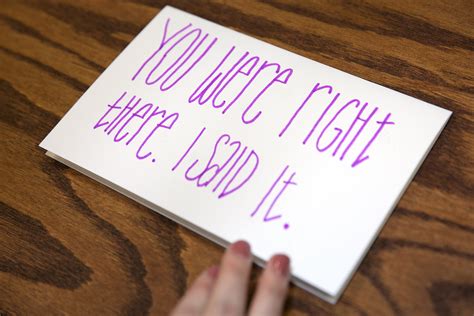 YOU WERE RIGHT
tHERE. I SAID It.